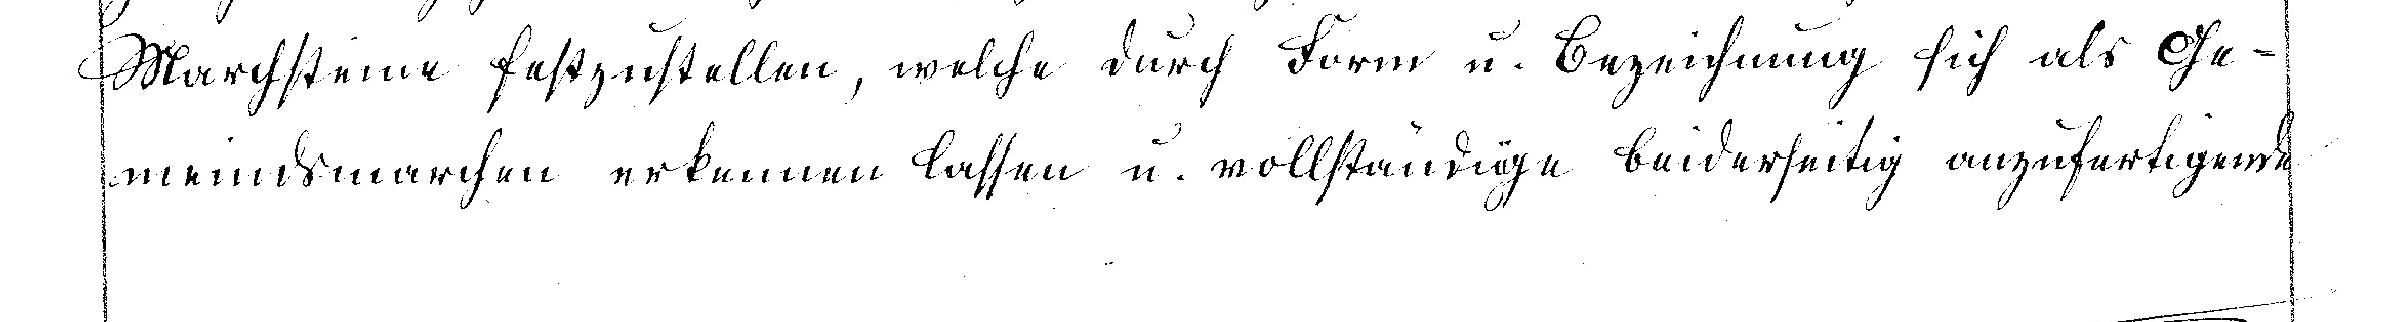 Marchsteine festzustellen, welche durch Form u. Bezeichnung sich als Ge-
meindsmarchen erkennen lassen u. vollständige beiderseitig anzufertigende